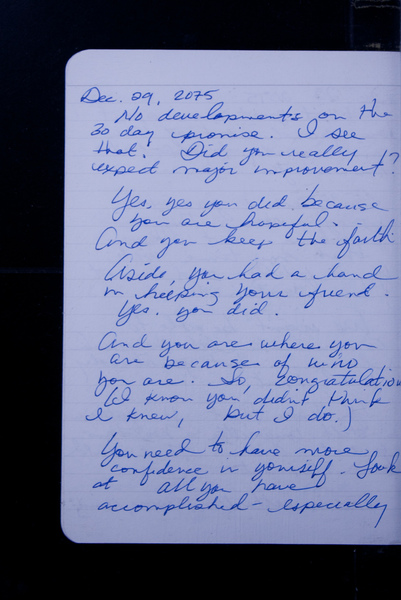 Dec. 29, 2075
No developments on the
30 day promise. I see
that. Did you really
expect major improvement?
Yes, yes you did because
you are hopeful.
And you keep the faith
Aside, you had a hand
in helping your friend.
Yes. you did.
And you are where you
are because of who
you are. So, congratulations
(I know you didn't think
I knew, but I do.)
You need to have more
confidence in yourself. Look
at all you have
accomplished - especially